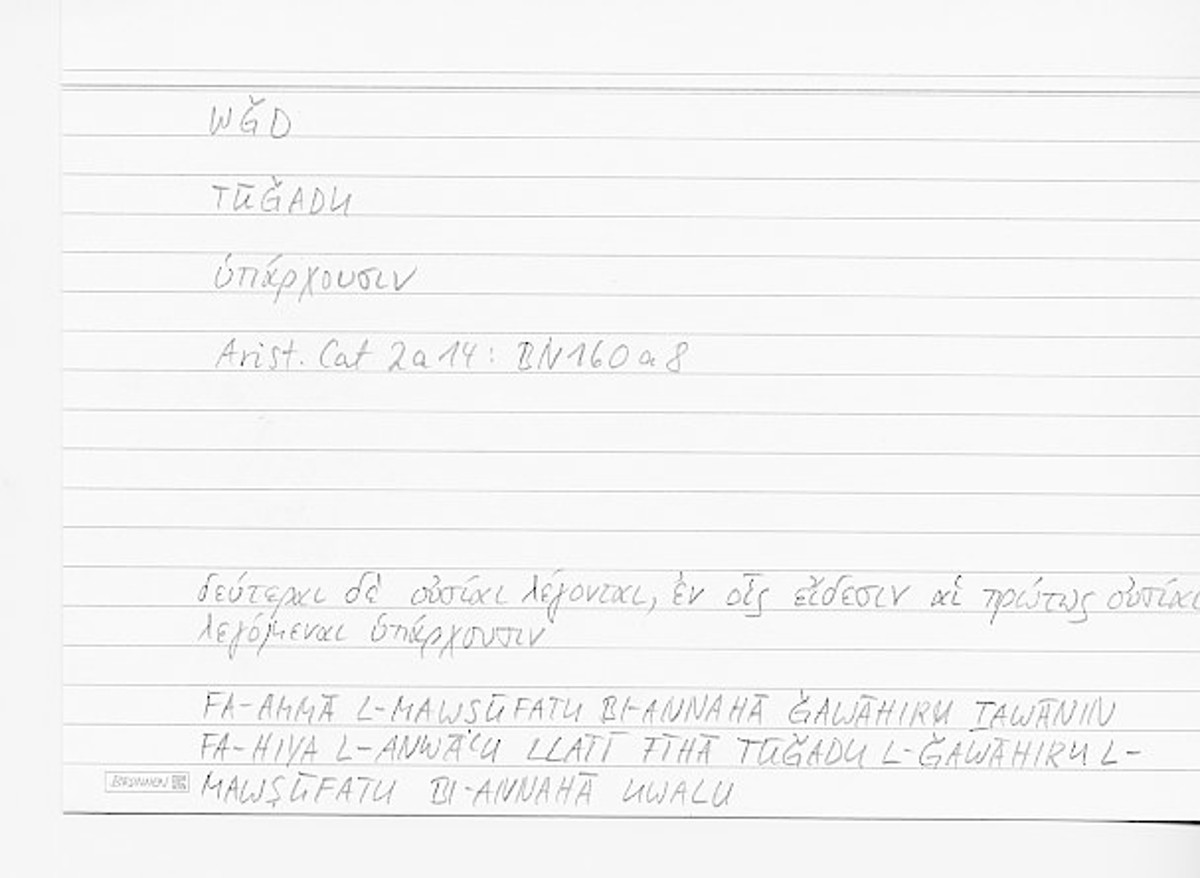 WǦD
TŪǦADU
ὑπάρχουσιν
Arist. Cat 2a14: BN160a8
δεύτεραι δὲ οὐσίαι λέγονται, ἐν οἷς εἴδεσιν αἱ πρώτως οὐσίαι
λεγόμεναι ὑπάρχουσιν
FA-AMMĀ L-MAWṢŪFATU BI-ANNAHĀ ǦAWĀHIRU ṮAWĀNIN
FA-HIYA L-ANWĀʿU LLATĪ FĪHĀ TŪǦADU L-ǦAWĀHIRU L-
MAWṢŪFATU BI-ANNAHĀ UWALU
BRUNNEN